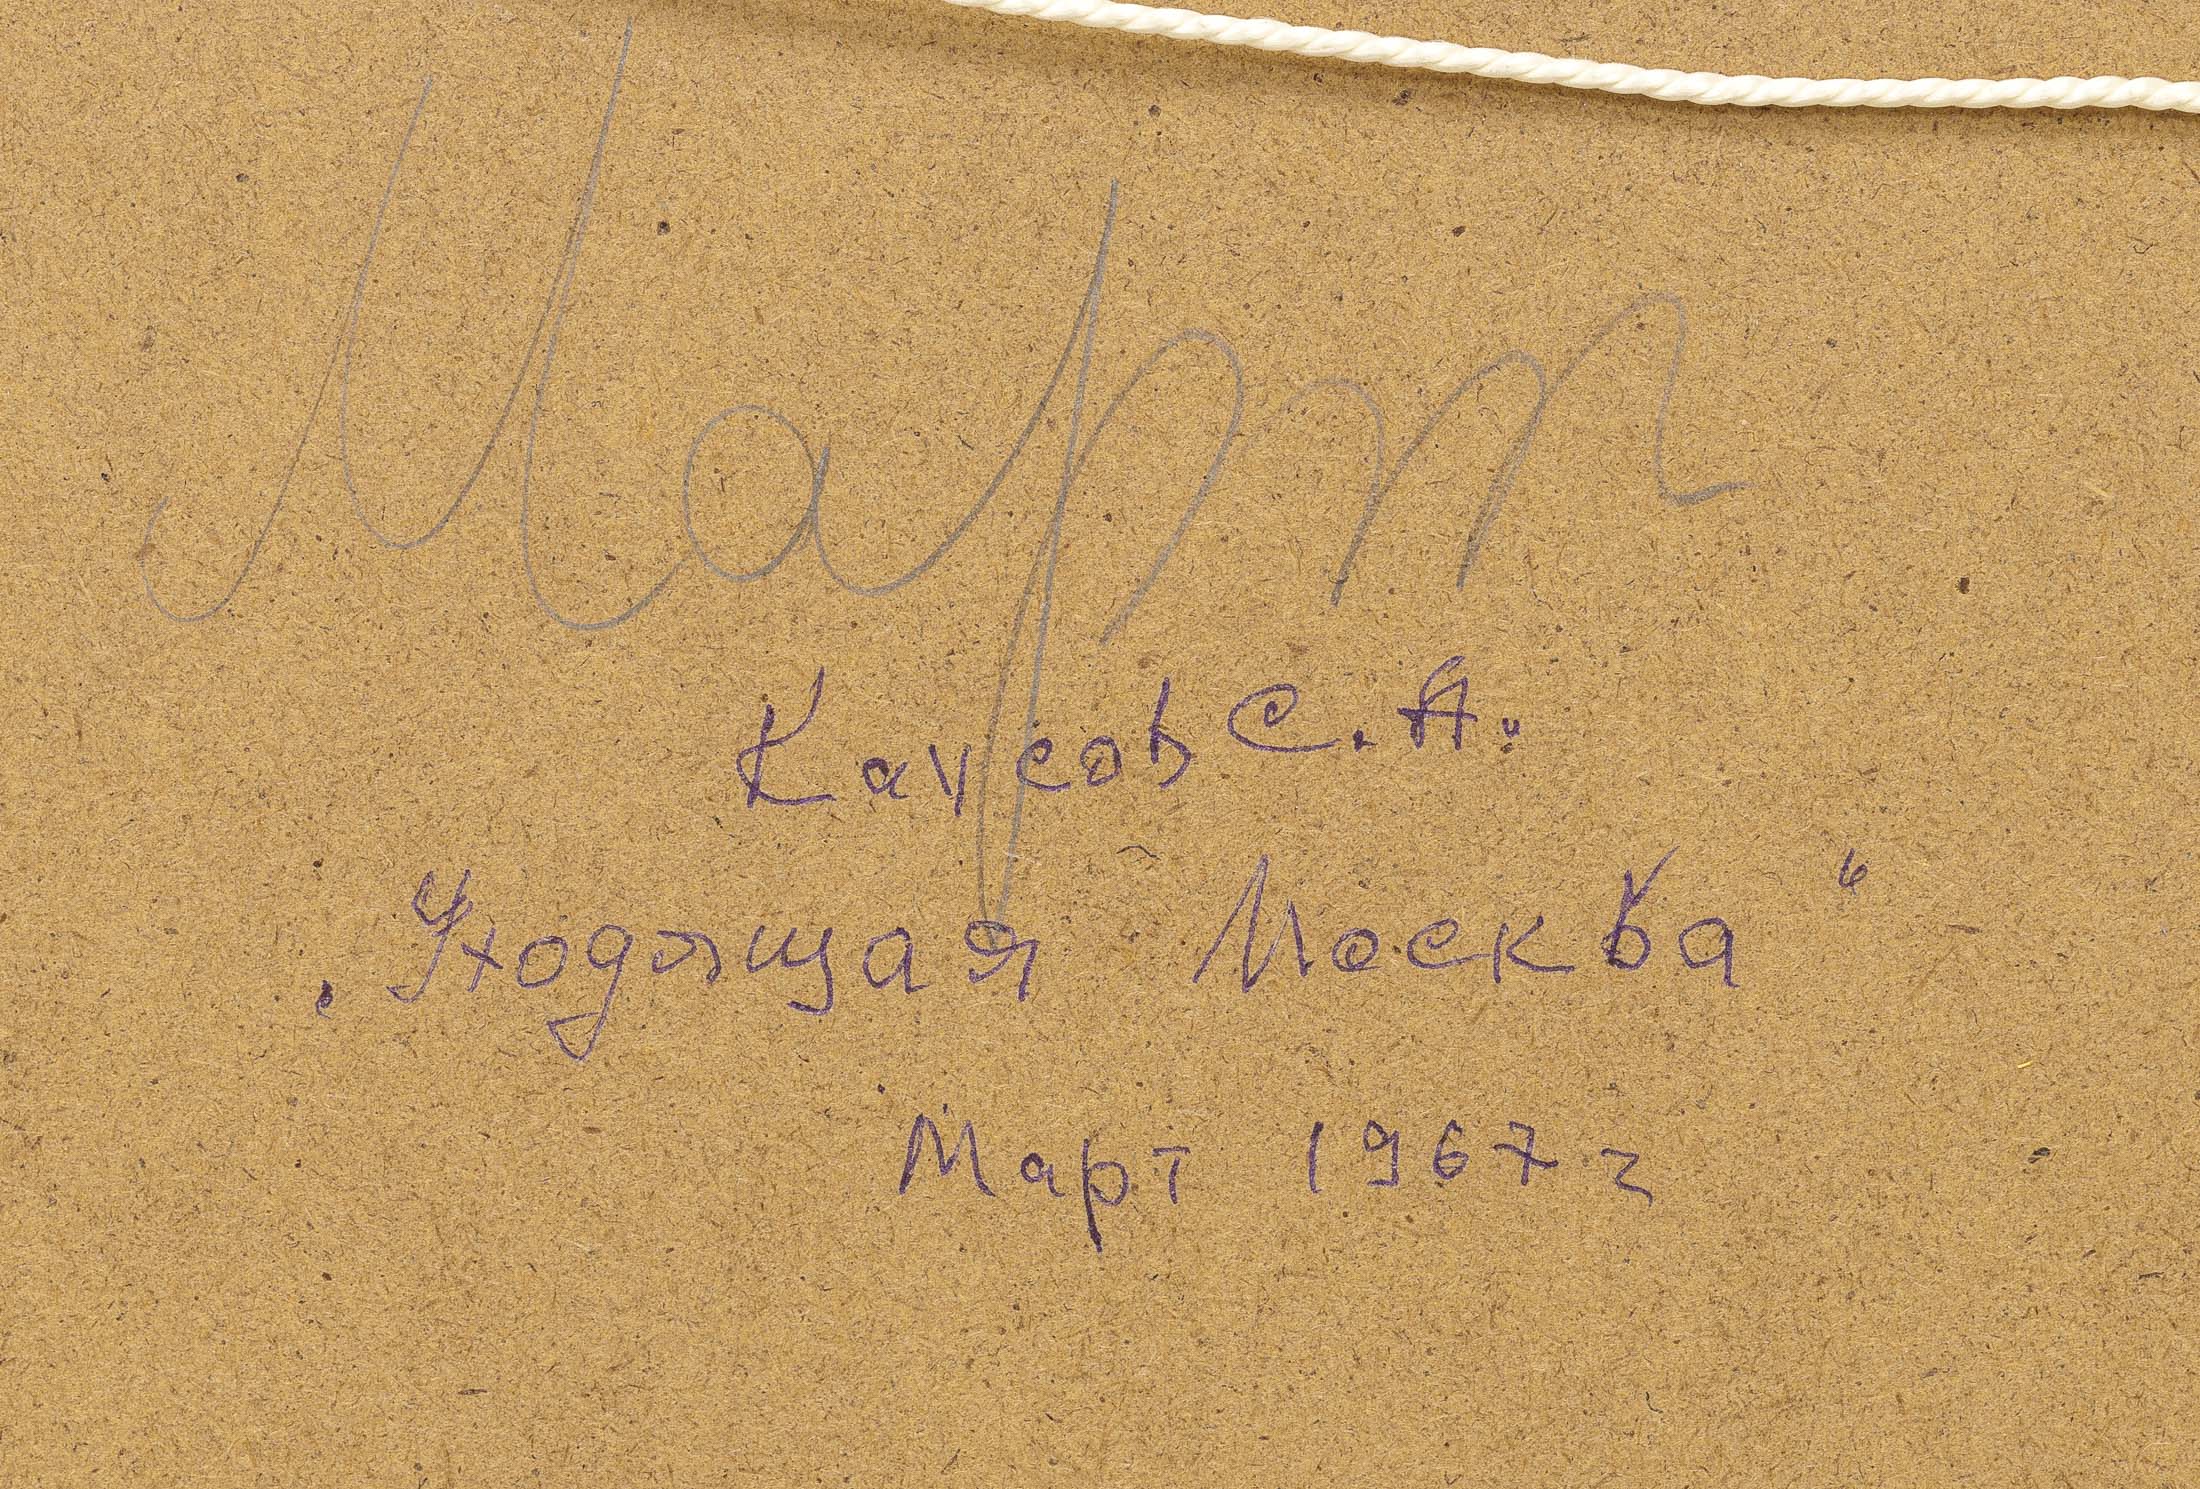 Март
Каусов С. А.
„Уходящая Москва“
Март 1967 г